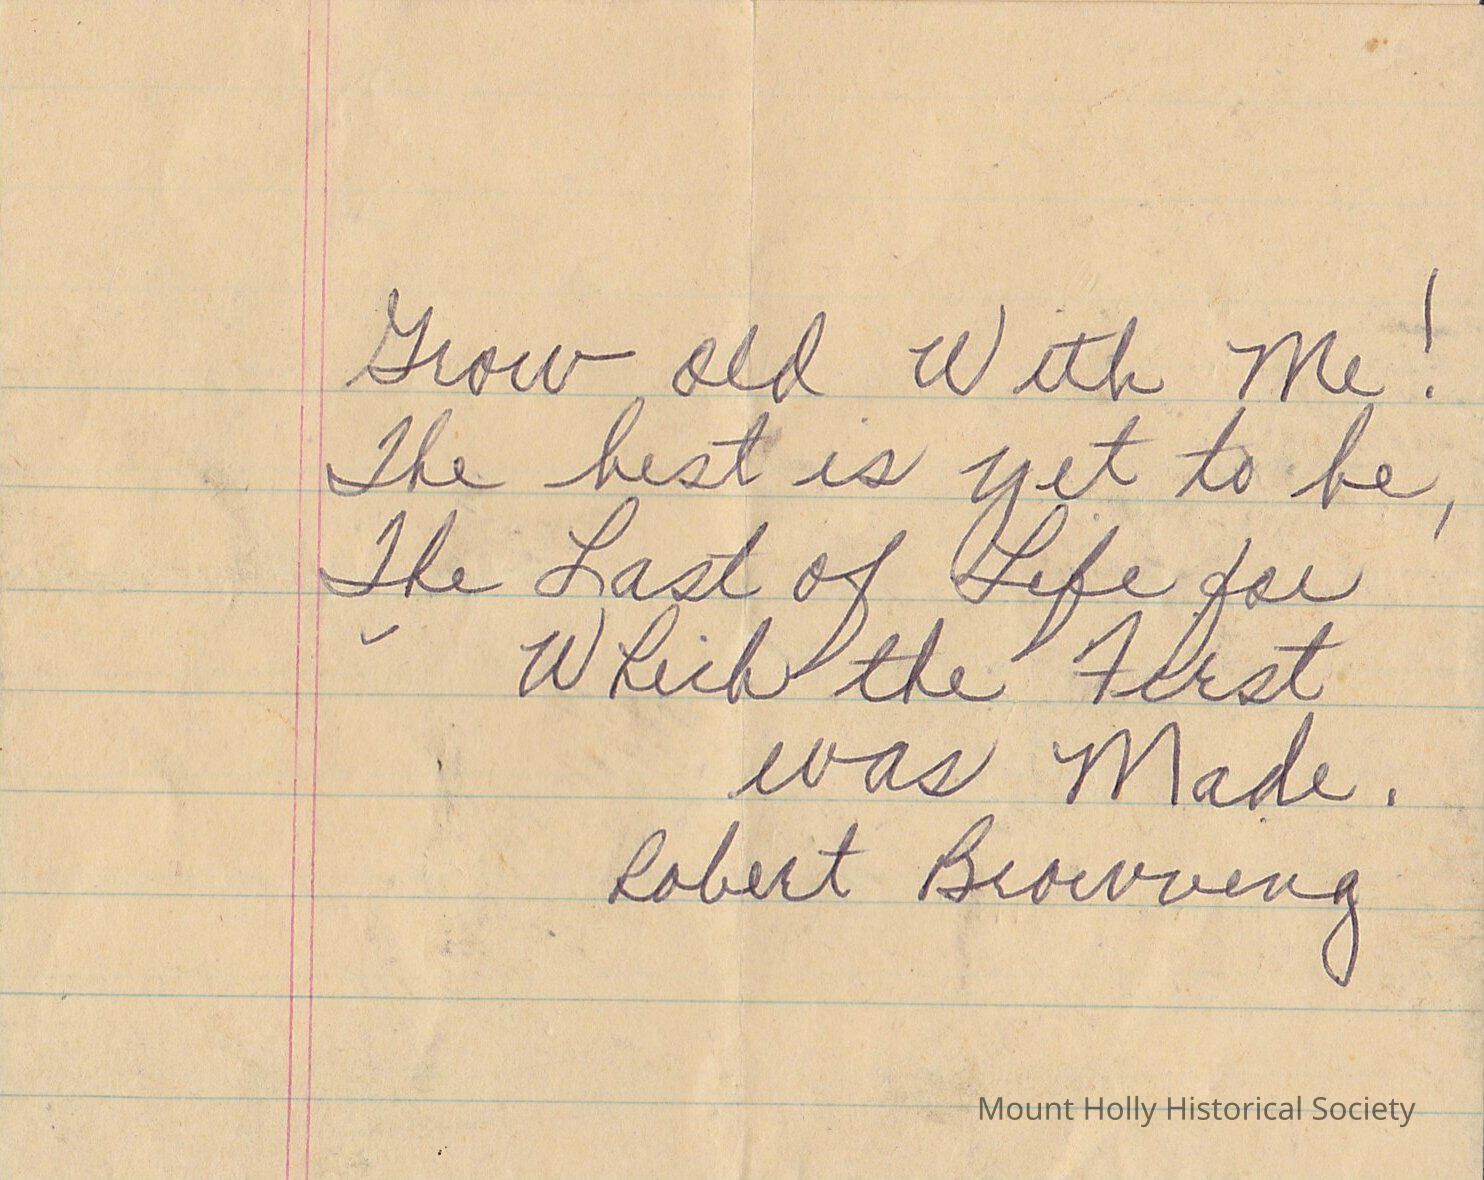 Grow old With Me!
The best is yet to be,
The Last of Life for
Which the First
was Made.
Robert Browning
Mount Holly Historical Society